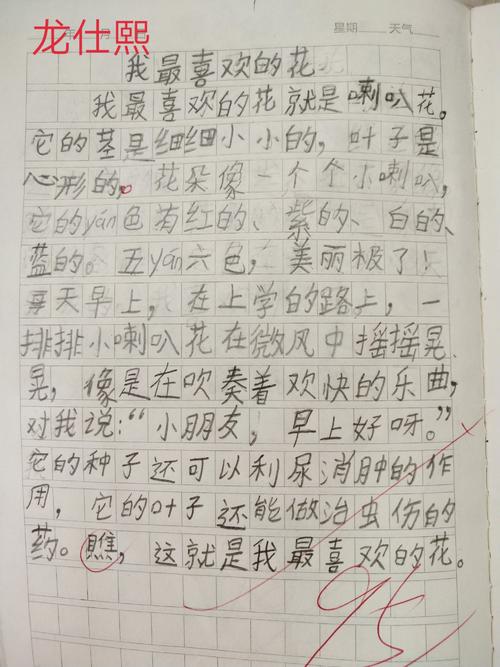 龙仕熙
年 月 星期 天气
我最喜欢的花
我最喜欢的花就是喇叭花。
它的茎是细细小小的，叶子是
心形的。花朵像一个个小喇叭，
它的yán色有红的、紫的、白的、
蓝的。五yán六色，美丽极了！
每天早上，在上学的路上，一
排排小喇叭花在微风中摇摇晃
晃，像是在吹奏着欢快的乐曲，
对我说：“小朋友，早上好呀。”
它的种子还可以利尿消肿的作
用，它的叶子还能做治虫伤的
药。瞧，这就是我最喜欢的花。
95